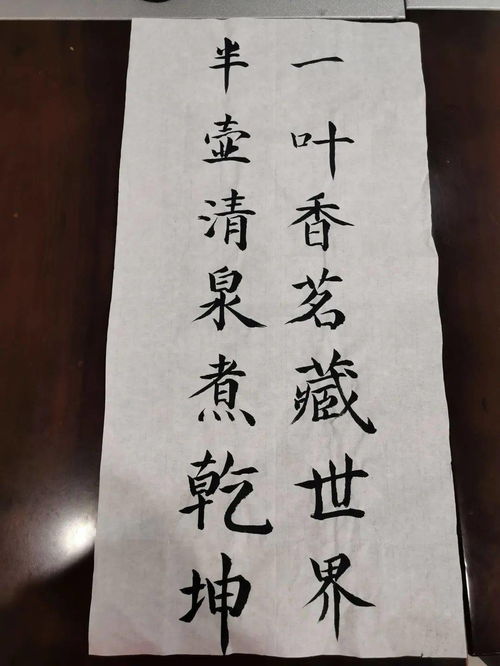 一叶香茗藏世界
半壶清泉煮乾坤